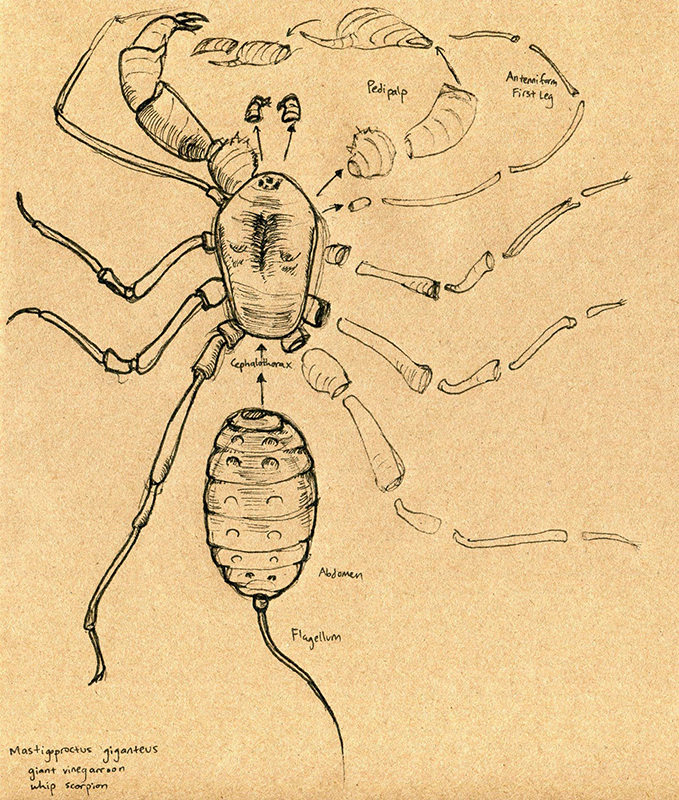 Pedipalp
Antenniform
First Leg
Cephalothorax
Abdomen
Flagellum
Mastigoproctus giganteus
giant vinegarroon
whip scorpion